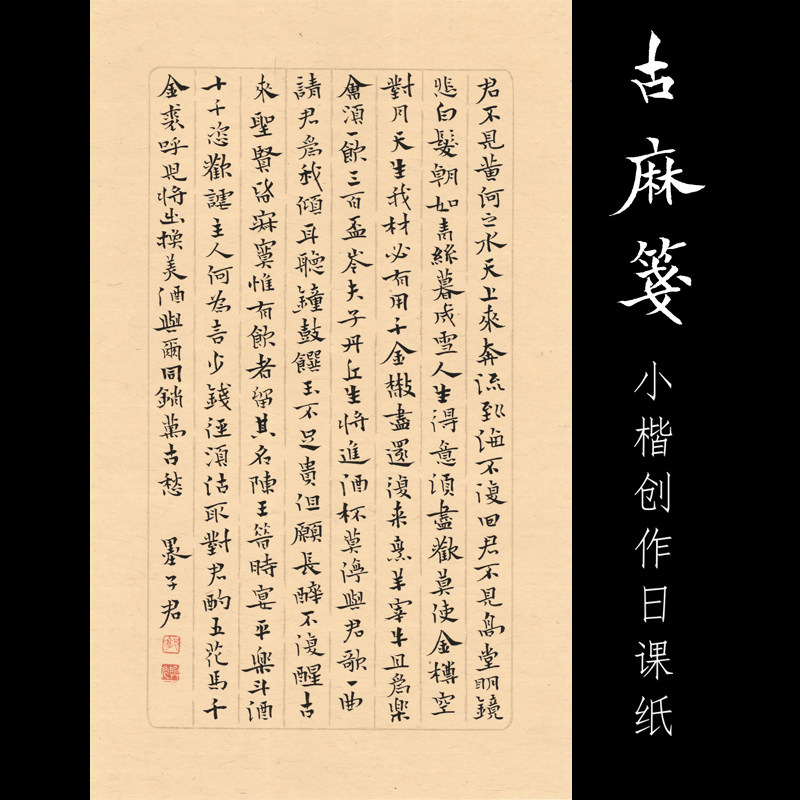 古麻箋
小楷创作日课纸
君不見黄河之水天上來奔流到海不復回君不見高堂明鏡
悲白髮朝如青絲暮成雪人生得意須盡歡莫使金樽空
對月天生我材必有用千金散盡還復来烹羊宰牛且為樂
會須一飲三百盃岑夫子丹丘生將進酒杯莫渟與君歌一曲
請君為我傾耳聽鐘鼓饌玉不足貴但願長醉不復醒古
來聖賢皆寂寞惟有飲者留其名陳王昔時宴平樂斗酒
十千恣歡謔主人何為言少錢逕須沽取對君酌五花馬千
金裘呼兒將出換美酒與爾同銷萬古愁 墨子君